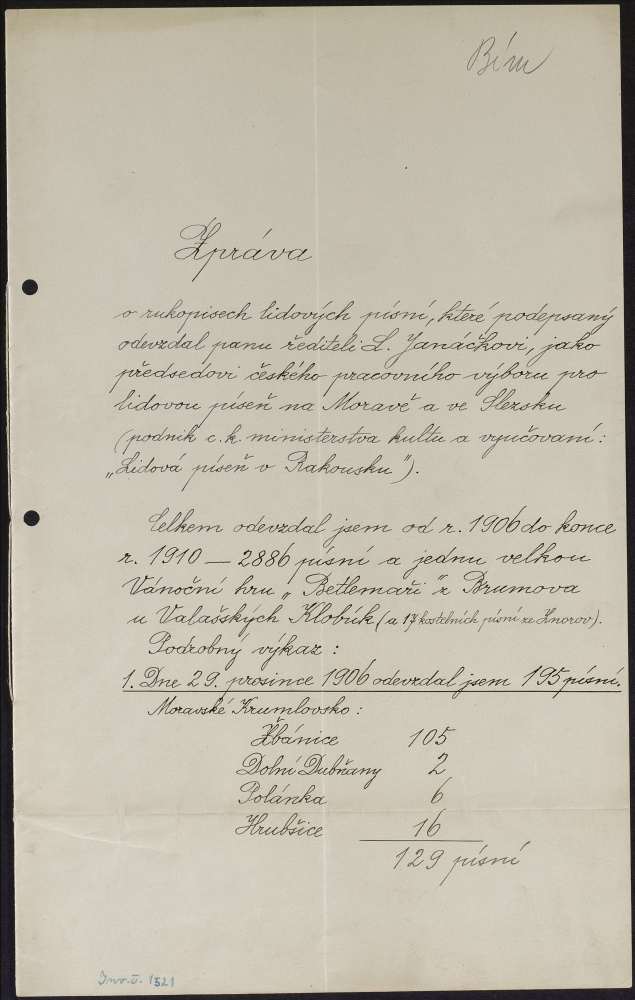 Bím
Zpráva
o rukopisech lidových písní, které podepsaný
odevzdal panu řediteli L. Janáčkovi, jako
předsedovi českého pracovního výboru pro
lidovou píseň na Moravě a ve Slezsku
(podnik c. k. ministerstva kultu a vyučovaní:
„Lidová píseň v Rakousku").
Celkem odevzdal jsem od r. 1906 do konce
r. 1910 — 2886 písní a jednu velkou
Vánoční hru „Betlemáři" z Brumova
u Valašských Klobúk (a 17 kostelních písní ze Znorov).
Podrobný výkaz:
1. Dne 29. prosince 1906 odevzdal jsem 195 písní.
Moravské Krumlovsko:
Žbánice 105
Dolní Dubňany 2
Polánka 6
Hrubšice 16
129 písní
Inv. č. 1321